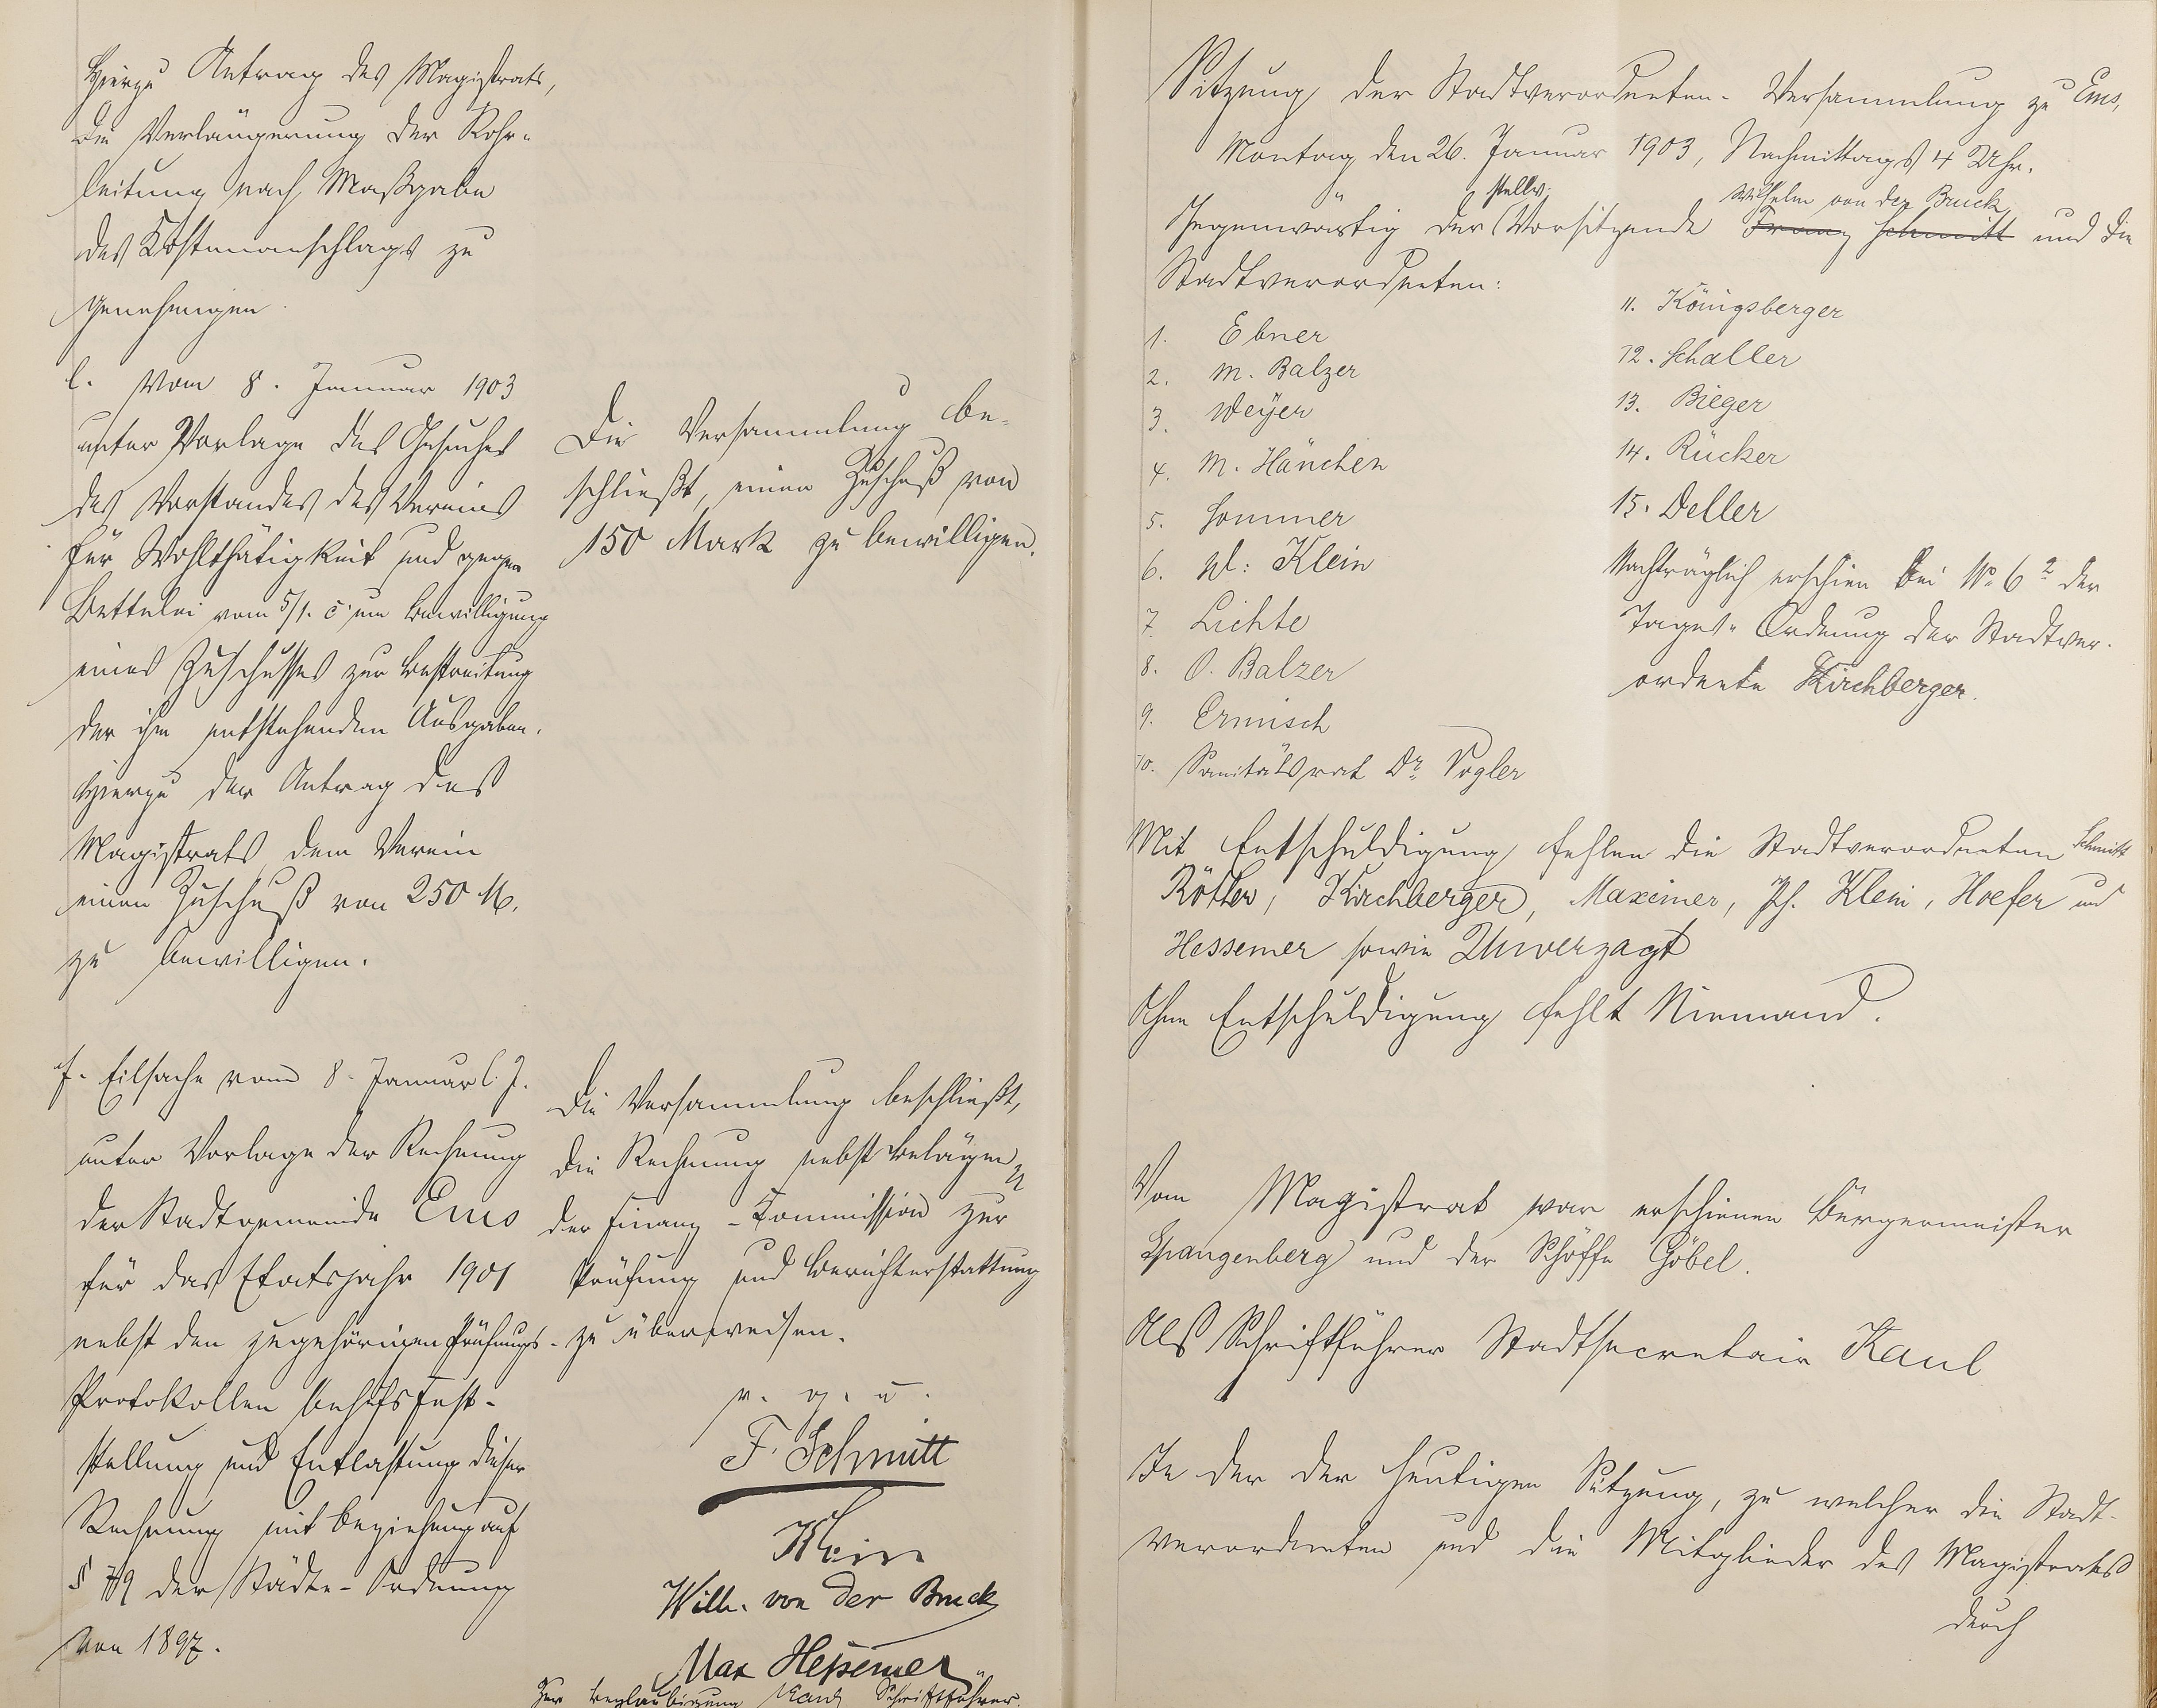 Hierzu Antrag des Magistrats,
die Verlängerung der Rohr-
leitung nach Maßgabe
des Kostenanschlags zu
genehmigen.
e. Vom 8. Januar 1903
unter Vorlage des Gesuches
des Vorstandes des Vereins
für Wohlthätigkeit und gegen
Bettelei vom 5/1. c. um Bewilligung
eines Zuschusses zur Bestreitung
der ihm entstehenden Ausgaben.
Hierzu der Antrag des
Magistrats dem Verein
einen Zuschuß von 250 M.
zu bewilligen.
Die Versammlung be-
schließt, einen Zuschuß von
150 Mark zu bewilligen.
f. Eilsache vom 8. Januar l. J.
unter Vorlage der Rechnung
der Stadtgemeinde Ems
für das Etatsjahr 1901
nebst den zugehörigen Prüfungs-
Protokollen behufs Fest-
stellung und Entlastung dieser
Rechnung mit Beziehung auf
§ 79 der Städte-Ordnung
von 1897.
Die Versammlung beschließt,
die Rechnung nebst Belägen
der Finanz-Kommission zur
Prüfung und Berichterstattung
zu überweisen.
v. g. u.
F. Schmitt
Klein
Wilh. von der Bruck
Max Hessemer
Zur Beglaubigung Kaul Schriftführer.
Sitzung der Stadtverordneten-Versammlung zu Ems,
Montag den 26. Januar 1903, Nachmittags 4 Uhr.
stellv. Wilhelm von der Bruck
Gegenwärtig der Vorsitzende Franz Schmitt und die
Stadtverordneten:
1. Ebner
2. M. Balzer
3. Weyer
4. M. Hänchen
5. Sommer
6. W. Klein
7. Lichte
8. O. Balzer
9. Ermisch
10. Sanitätsrat Dr. Vogler
11. Königsberger
12. Schaller
13. Bieger
14. Rücker
15. Deller
Nachträglich erschien bei No. 6 2 der
Tages-Ordnung der Stadtver-
ordnete Kirchberger.
Mit Entschuldigung fehlen die Stadtverordneten Schmitt
Röther, Kirchberger, Maxeiner, Ph. Klein, Hoefer und
Hessemer sowie Unverzagt
Ohne Entschuldigung fehlt Niemand.
Vom Magistrat war erschienen Bürgermeister
Spangenberg und der Schöffe Göbel.
Als Schriftführer Stadtsecretair Kaul
In der der heutigen Sitzung, zu welcher die Stadt-
verordneten und die Mitglieder des Magistrats
durch